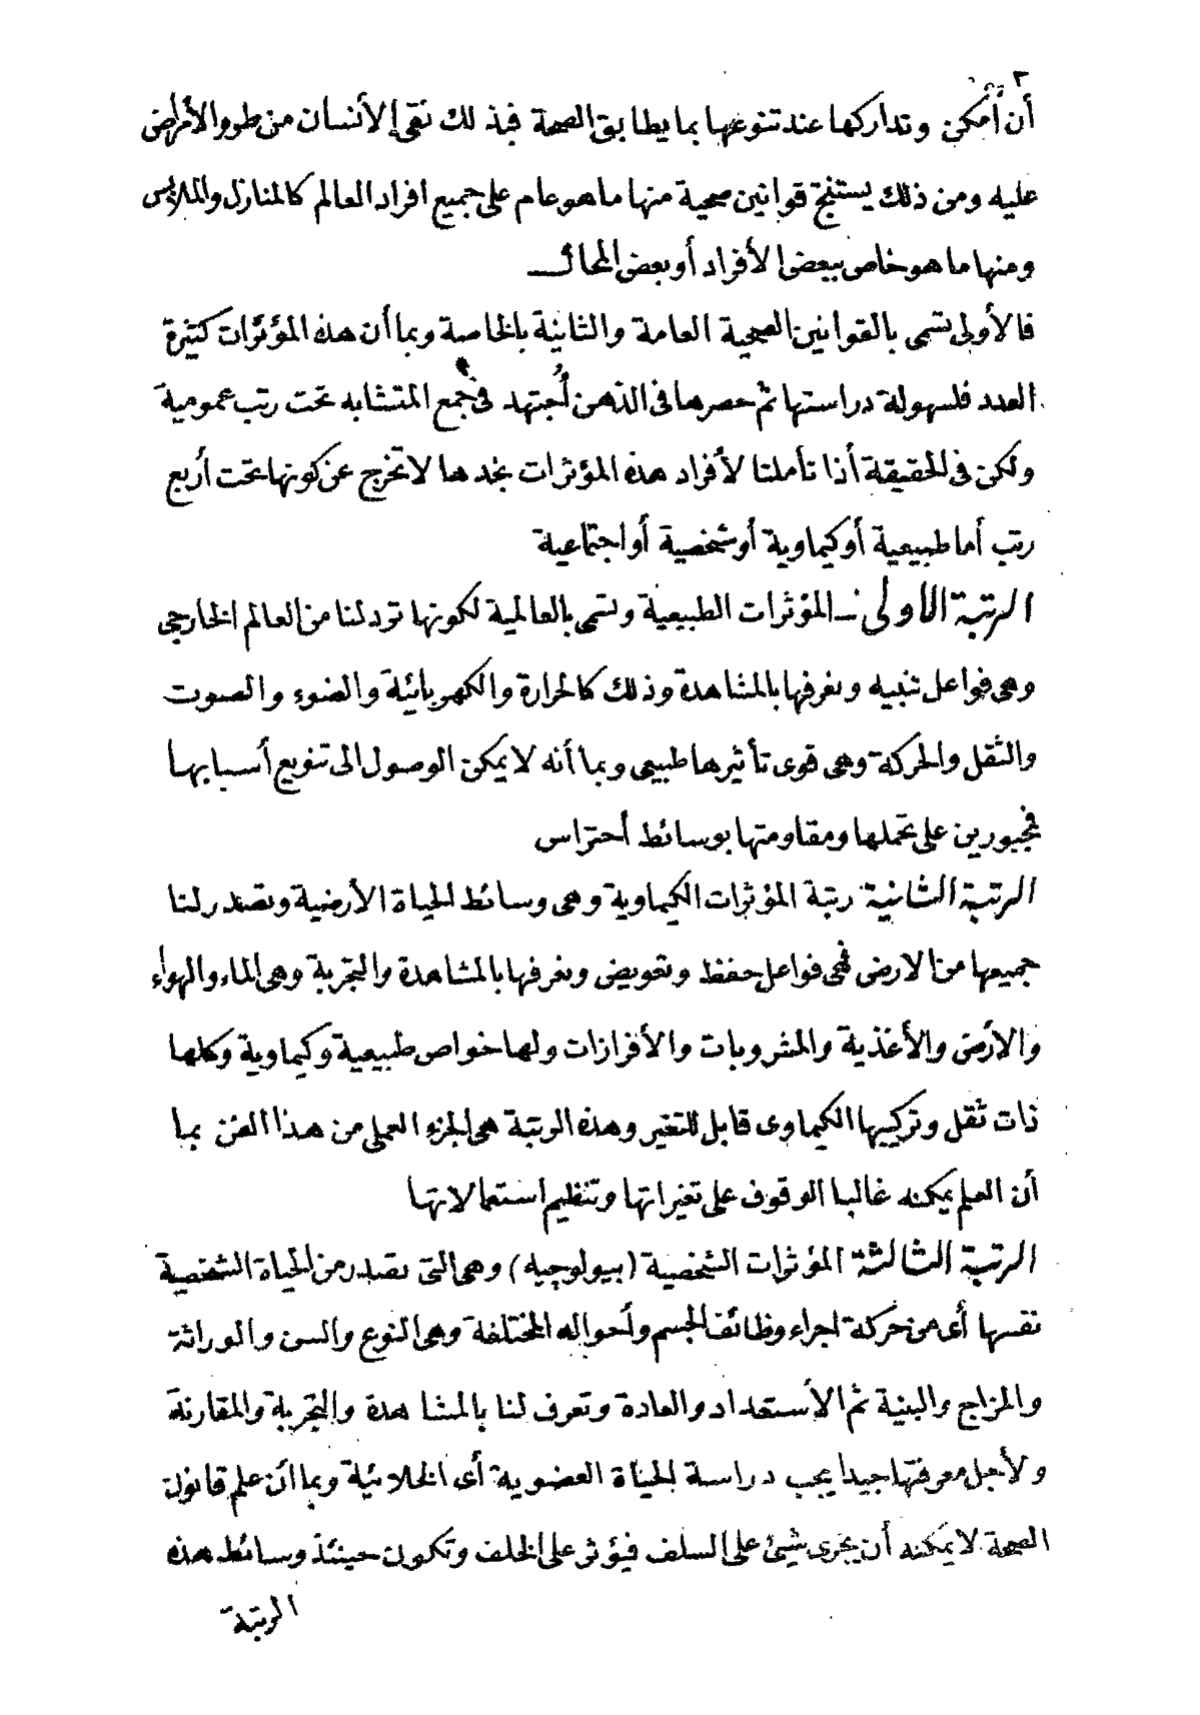 ٢
أن أمكن وتداركها عند تنوعها بما يطابق الصحة فبذلك نقى الأنسان من طرو الأمراض
عليه ومن ذلك يستنتج قوانين صحية منها ما هو عام على جميع افراد العالم كالمنازل والملابس
ومنها ما هو خاص ببعض الأفراد أو بعض المحال
فالأولى تسمى بالقوانين الصحية العامة والثانية بالخاصة وبما أن هذه المؤثرات كثيرة
العدد فلسهولة دراستها ثم حصرها فى الذهن أُجتهد فى جمع المتشابه تحت رتب عمومية
ولكن فى الحقيقة أذا تأملنا لأفراد هذه المؤثرات نجدها لا تخرج عن كونها تحت أربع
رتب أما طبيعية أو كيماوية أو شخصية أو اجتماعية
الرتبة الأولى :ــ المؤثرات الطبيعية وتسمى بالعالمية لكونها ترد لنا من العالم الخارجى
وهى فواعل تنبيه ونعرفها بالمشاهدة وذلك كالحرارة والكهربائية والضوء والصوت
والثقل والحركة وهى قوى تأثيرها طبيعى وبما أنه لا يمكن الوصول الى تنويع أسبابها
فمجبورين على تحملها ومقاومتها بوسائط أحتراس
الرتبة الثانية رتبة المؤثرات الكيماوية وهى وسائط الحياة الأرضية وتصدر لنا
جميعها من الارض فهى فواعل حفظ وتعويض ونعرفها بالمشاهدة والتجربة وهى الماء والهواء
والأرض والأغذية والمشروبات والأفرازات ولها خواص طبيعية وكيماوية وكلها
ذات ثقل وتركيبها الكيماوى قابل للتغير وهذه الرتبة هى الجزء العملى من هذا الفن بما
أن العلم يمكنه غالبا الوقوف على تغيراتها وتنظيم استعمالاتها
الرتبة الثالثة المؤثرات الشخصية (بيولوجيه) وهى التى تصدر من الحياة الشخصية
نفسها أى من حركة اجراء وظائف الجسم وأحواله المختلفة وهى النوع والسن والوراثة
والمزاج والبنية ثم الأستعداد والعادة وتعرف لنا بالمشاهدة والتجربة والمقارنة
ولأجل معرفتها جيدا يجب دراسة الحياة العضوية أى الخلائية وبما أن علم قانون
الصحة لا يمكنه أن يجرى شيئ على السلف فيؤثر على الخلف وتكون حينئذ وسائط هذه
الرتبة